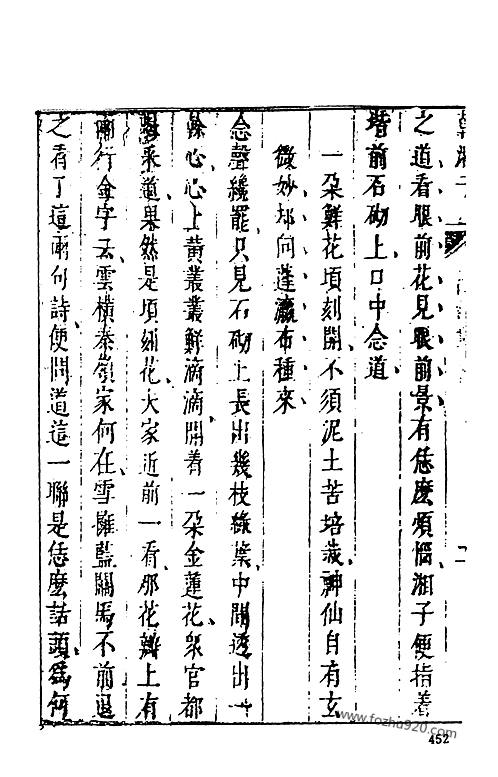 之道看眼前花見眼前景有恁麽煩惱湘子便指着
堦前石砌上口中念道
一朵鮮花頃刻開不須泥土苦培栽神仙自有玄
微妙却向蓬瀛布種來
念聲纔罷只見石砌上長出幾枝綠葉中間透出一
條心心上黄叢叢鮮滴滴開着一朵金蓮花衆官都
喝采道果然是頃刻花大家近前一看那花瓣上有
兩行金字云雲橫秦嶺家何在雪擁藍關馬不前退
之看了這兩句詩便問道這一聯是恁麽話頭爲何
www.fozhu920.com
452